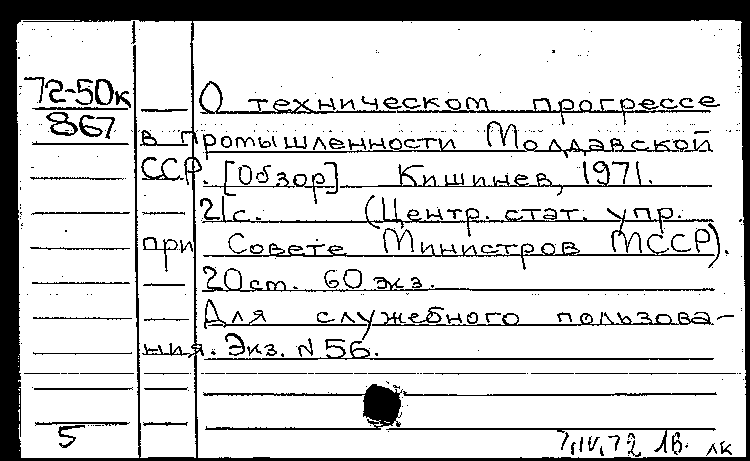 72-50к
867
О техническом прогрессе
в промышленности Молдавской
ССР. [Обзор] Кишинев, 1971.
21с. (Центр. стат. упр.
при Совете Министров МССР).
20см. 60 экз.
Для служебного пользова-
ния. Экз. N 56.
5
7,IV,72 1в. лк